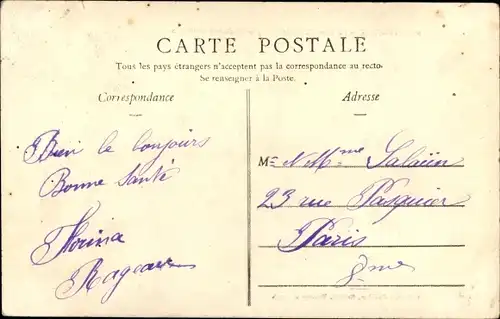 CARTE POSTALE
Tous les pays étrangers n'acceptent pas la correspondance au recto.
Se renseigner à la Poste.
Correspondance
Adresse
Bien le bonjours
Bonne Santé
M M Mme Salaün
23 rue Pasquier
Paris
8me